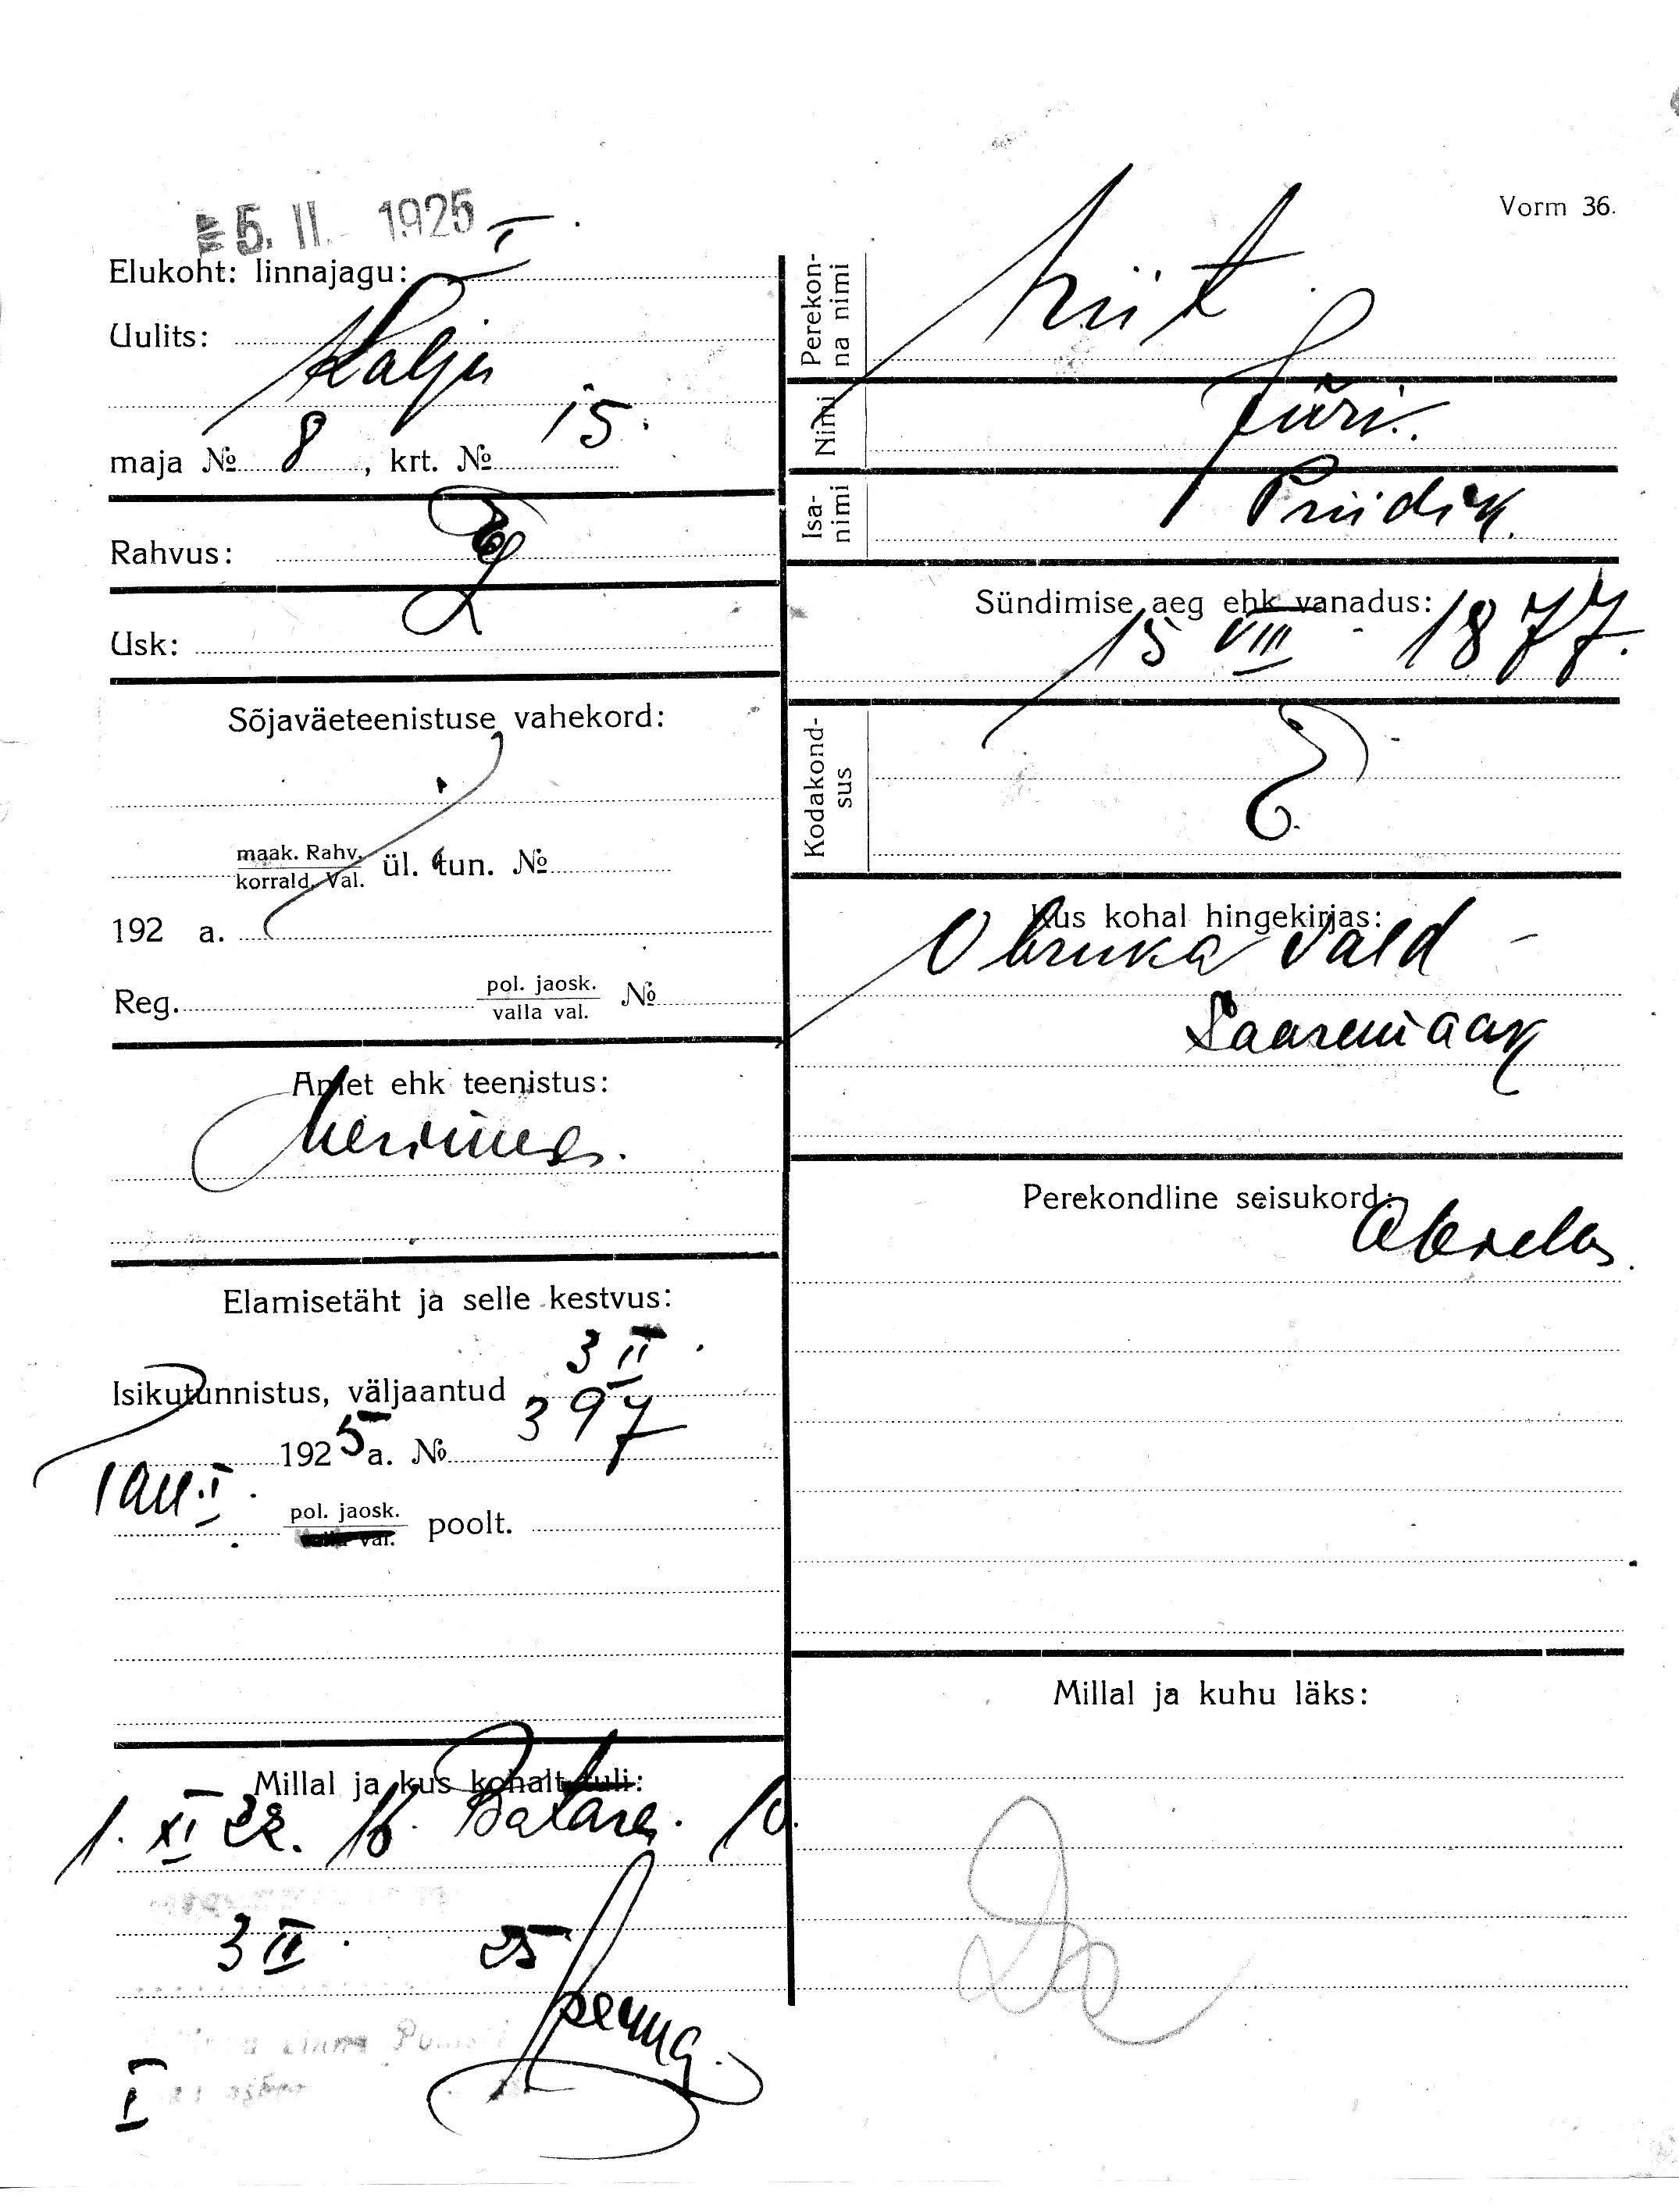 Vorm 36.
5. II. 1925
Elukoht: linnajagu: I
Uulits: Kalju
maja № 8, krt. № 15.
Rahvus: E
Usk: L
Sõjaväeteenistuse vahekord:
maak. Rahv.
korrald. Val. ül. tun. №
192 a.
Reg. pol. jaosk. №
valla val.
Amet ehk teenistus:
Meremees.
Elamisetäht ja selle kestvus:
3 II.
Isikutunnistus, väljaantud
1925 a. № 397
Tall. I.
pol. jaosk. poolt.
valla val.
Millal ja kus kohalt tuli:
1. XI 22. 16.
3 II. 25
I
Perekonna nimi
Riit
Nimi
Jüri.
Isanimi
Priidik.
Sündimise aeg ehk vanadus:
15 VIII 1877.
Kodakondsus
E.
Kus kohal hingekirjas:
Abruka vald -
Saaremaak
Perekondline seisukord:
Abielus.
Millal ja kuhu läks: